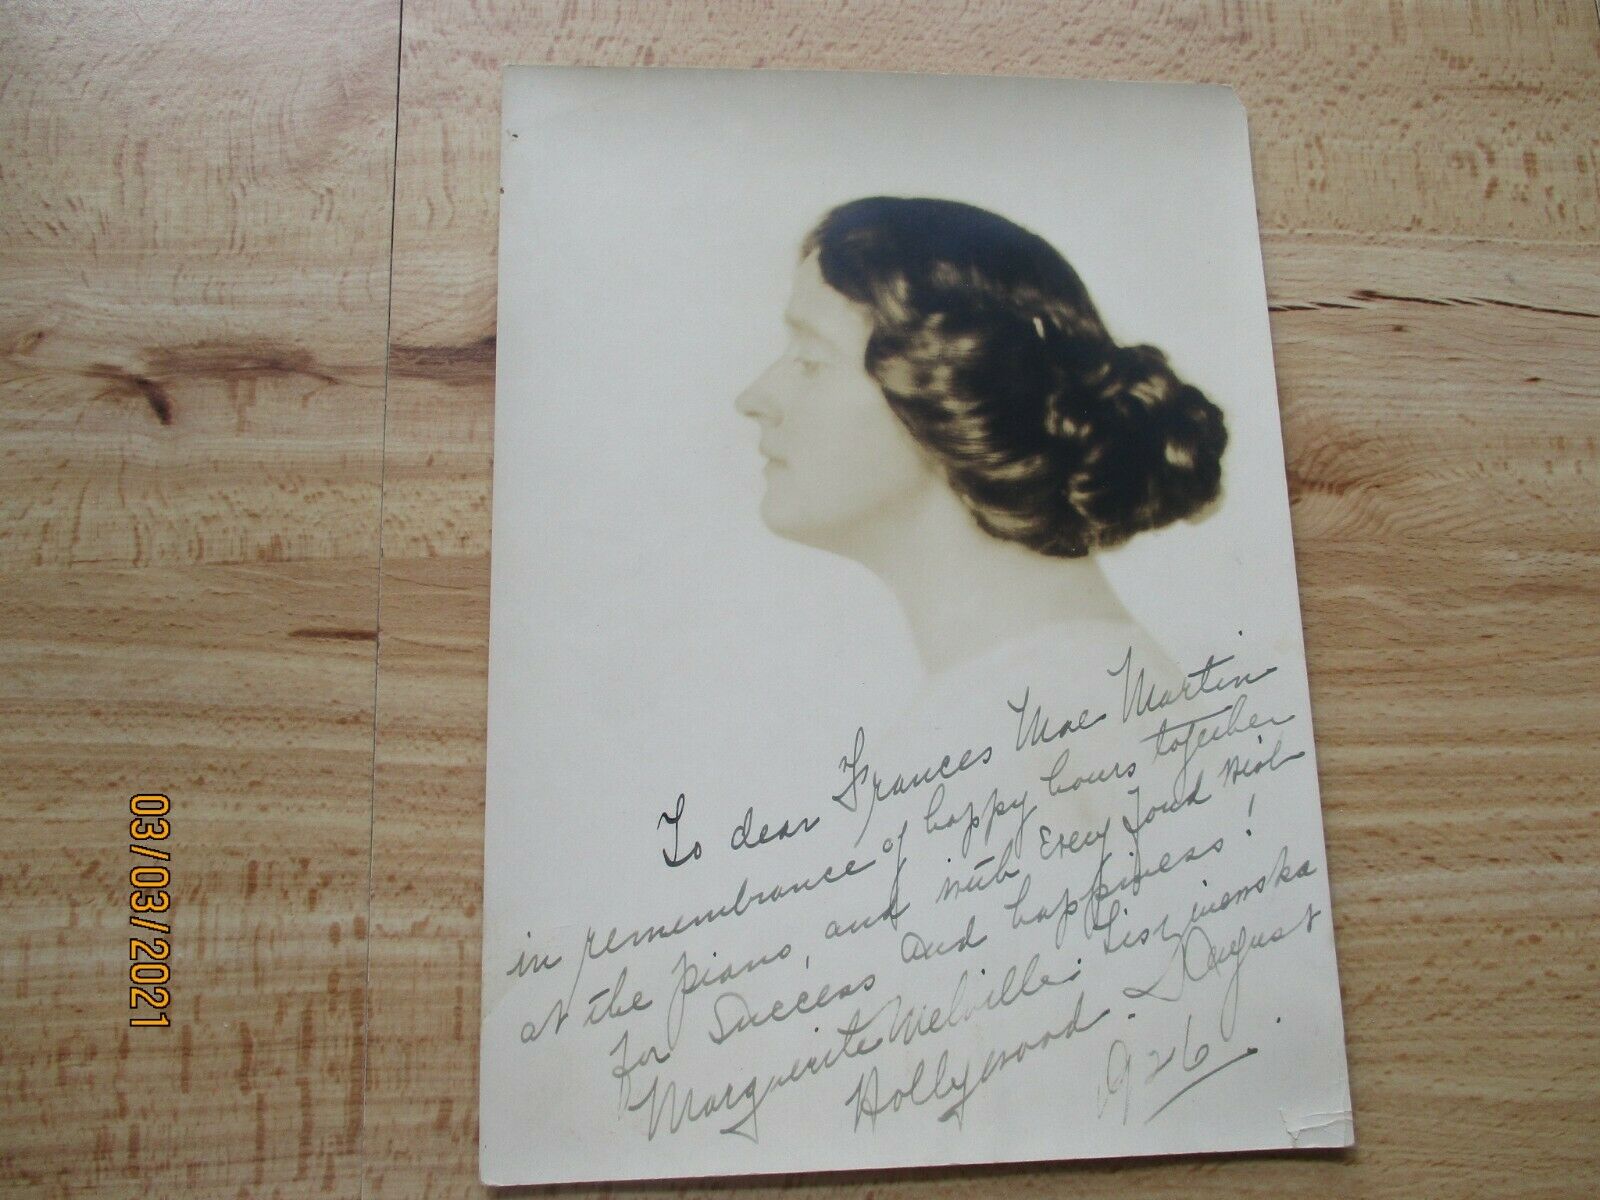 To dear Frances Mae Martin
in remembrance of happy hours together
at the piano, and with every fond wish
for success and happiness!
Marguerite Melville-Liszniewska
Hollywood. August
1926.
03/03/2021